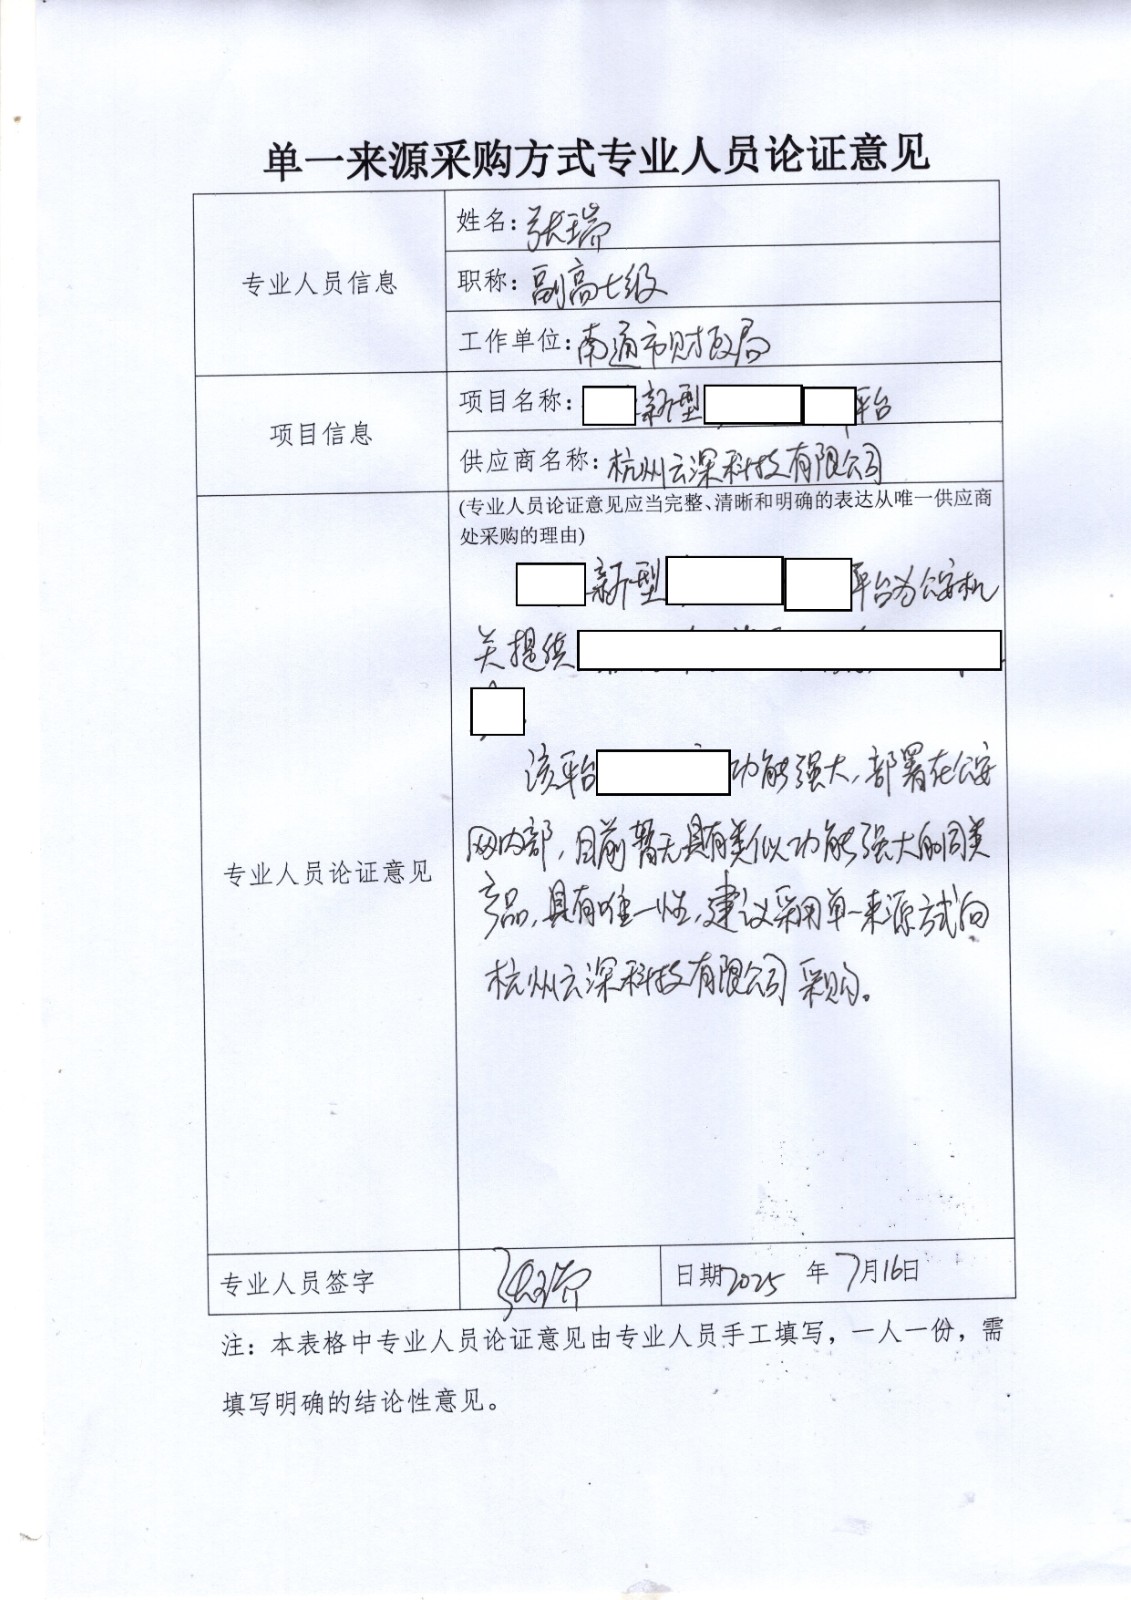 单一来源采购方式专业人员论证意见
专业人员信息
姓名：张瑞
职称：副高七级
工作单位：南通市财政局
项目信息
项目名称：新型平台
供应商名称：杭州云深科技有限公司
专业人员论证意见
(专业人员论证意见应当完整、清晰和明确的表达从唯一供应商
处采购的理由)
新型平台为公安机
关提供
该平台功能强大，部署在公安
网内部，目前暂无具有类似功能强大的同类
产品，具有唯一性，建议采用单一来源方式向
杭州云深科技有限公司采购。
专业人员签字
张瑞
日期2025 年 7月16日
注：本表格中专业人员论证意见由专业人员手工填写，一人一份，需
填写明确的结论性意见。